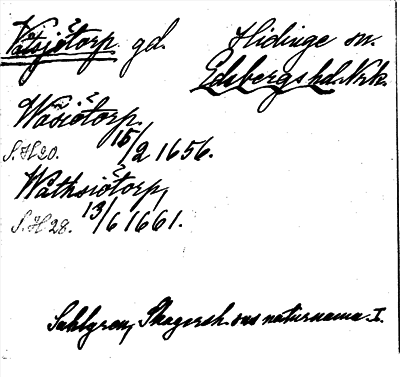 Våtsjötorp. gd. Hidinge sn.
Edsbergs hd. Nrk.
Wåsiötorp,
S. H 20. 15/2 1656.
Wåthsiötorp,
S. H 28. 13/6 1661.
Sahlgren, Skagersh. sns naturnamn. I.